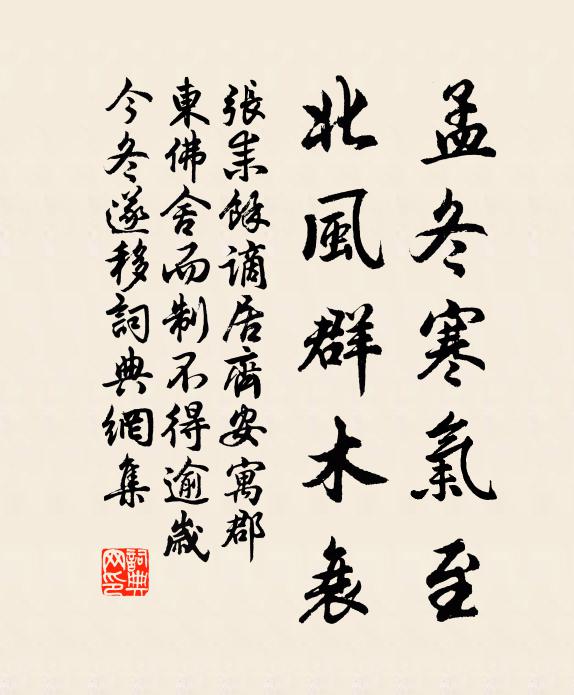 孟冬寒氣至
北風群木衰
張耒餘謫居齊安寓郡
東佛舍而制不得逾歲
今冬遂移詞典網集
詞典網印